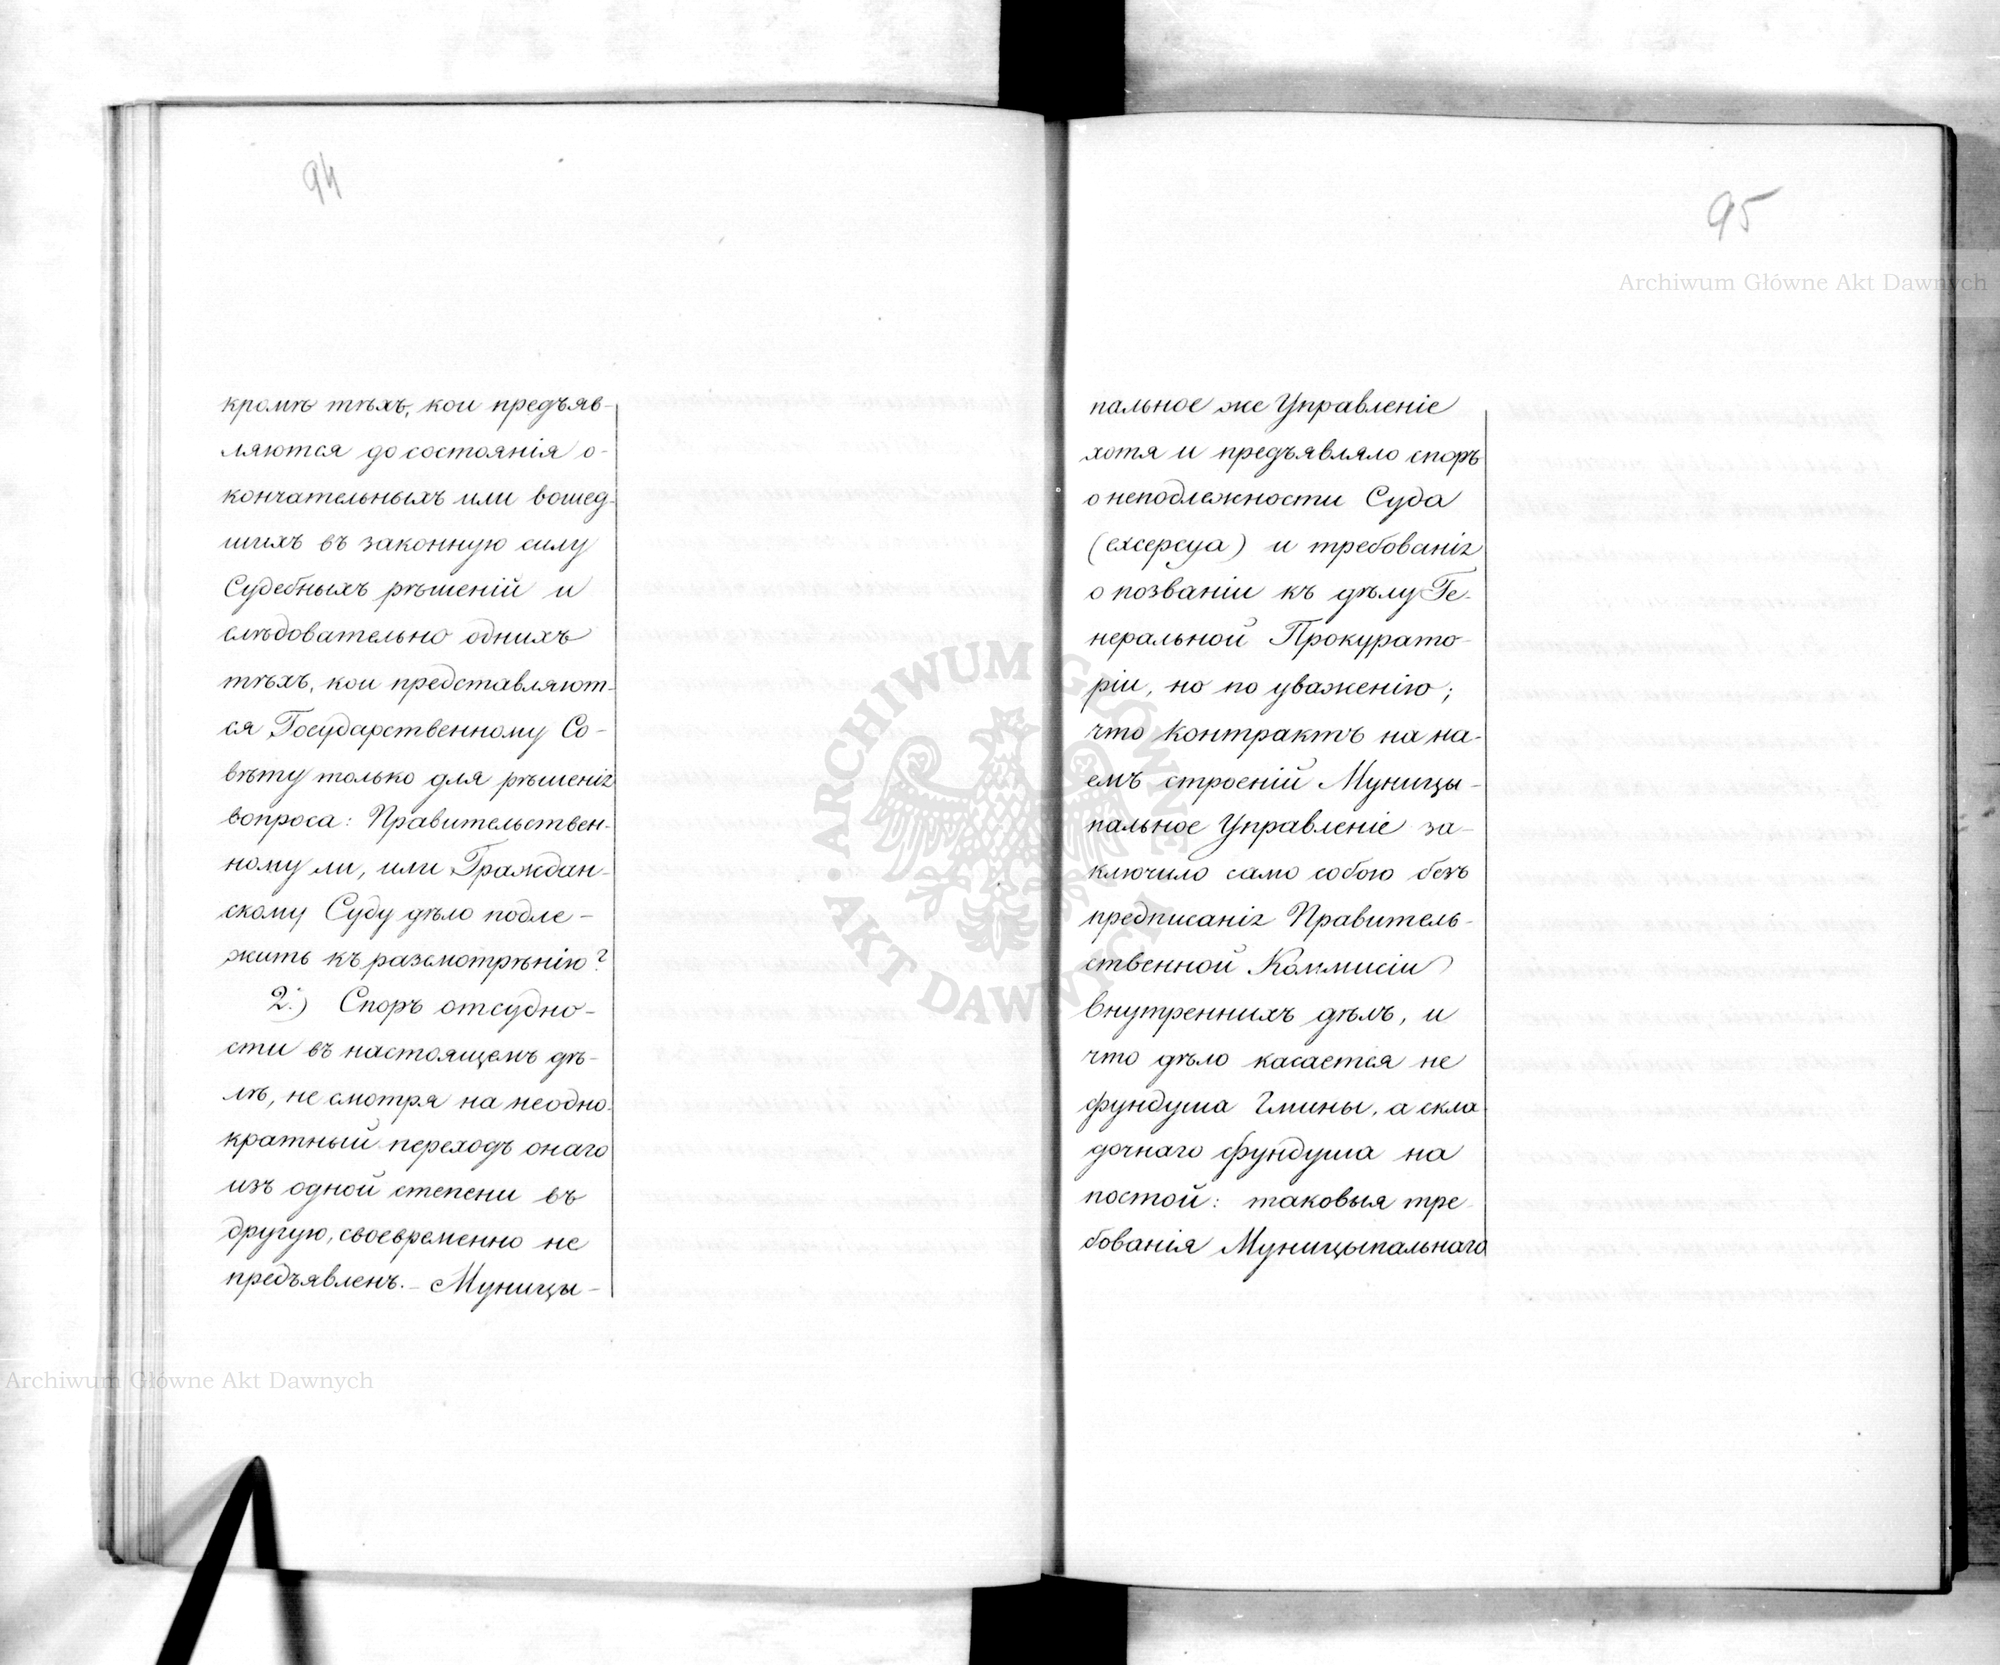 94
кромѣ тѣхъ, кои предъяв-
ляются до состоянія о-
кончательныхъ или вошед-
шихъ въ законную силу
Судебныхъ рѣшеній и
слѣдовательно однихъ
тѣхъ, кои представляют-
ся Государственному Со-
вѣту только для рѣшенія
вопроса: Правительствен-
ному ли, или Граждан-
скому Суду дѣло подле-
жить къ разсмотрѣнію?
2.) Споръ отсудно-
сти въ настоящемъ дѣ-
лѣ, не смотря на неодно-
кратный переходъ онаго
изъ одной степени въ
другую, своевременно не
предъявленъ. – Муницы-
95
пальное же Управленіе
хотя и предъявляло споръ
о неподлежности Суда
(ексерсуа) и требованія
о позваніи къ дѣлу Ге-
неральной Прокурато-
ріи, но по уваженію;
что контрактъ на на-
емъ строеній Муницы-
пальное Управленіе за-
ключило само собою безъ
предписанія Правитель-
ственной Коммисіи
внутреннихъ дѣлъ, и
что дѣло касается не
фундуша Гмины, а скла-
дочнаго фундуша на
постой: таковыя тре-
бованія Муницыпальнаго
Archiwum Główne Akt Dawnych
ARCHIWUM GŁÓWNE AKT DAWNYCH
Archiwum Główne Akt Dawnych